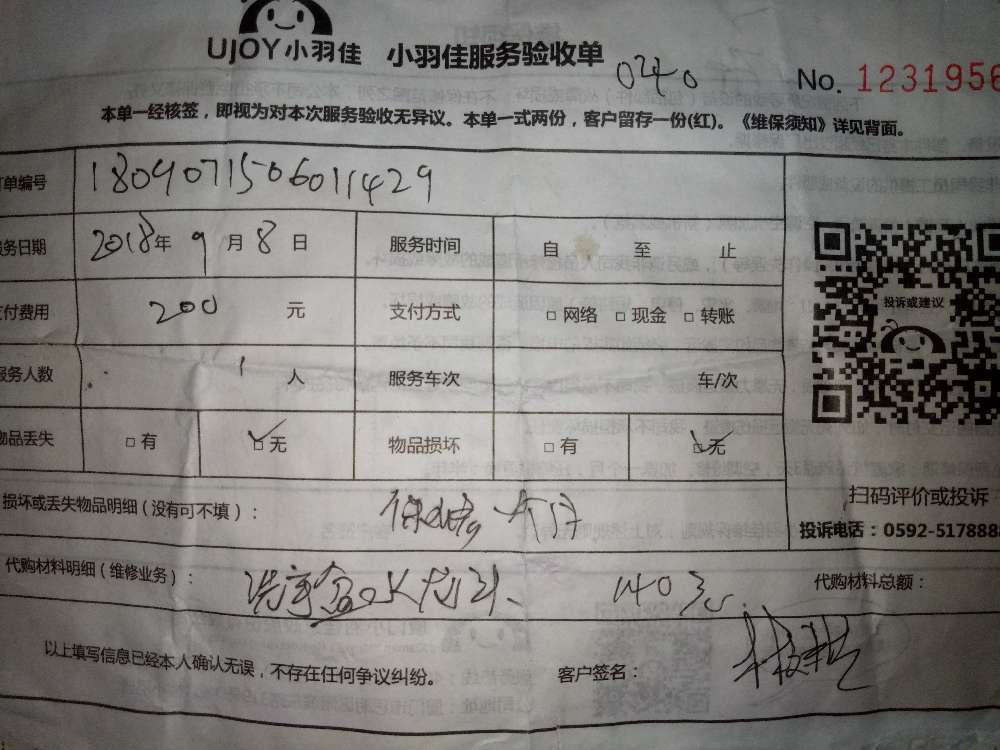 UJOY 小羽佳 小羽佳服务验收单 0240 No. 1231956
本单一经核签，即视为对本次服务验收无异议。本单一式两份，客户留存一份(红)。《维保须知》详见背面。
单编号 1809071506011429
务日期 2018年 9 月 8 日 服务时间 自 至 止
付费用 200 元 支付方式 □ 网络 □ 现金 □ 转账
投诉或建议
服务人数 1 人 服务车次 车/次
物品丢失 □ 有 □ 无 物品损坏 □ 有 □ 无
扫码评价或投诉
损坏或丢失物品明细（没有可不填）：
投诉电话：0592-517888
代购材料明细（维修业务）： 140元 代购材料总额：
以上填写信息已经本人确认无误，不存在任何争议纠纷。 客户签名：